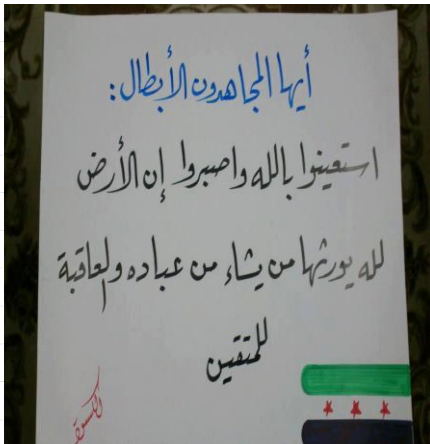 أيها المجاهدون الأبطال:
استعينوا بالله واصبروا إن الأرض
لله يورثها من يشاء من عباده والعاقبة
للمتقين
الكسوة